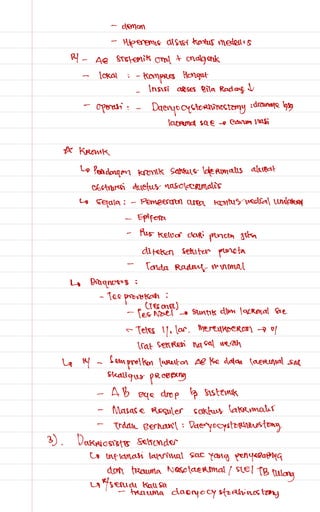 - demam
- Hiperemis di sisi kantus medialis
R/ - AB sistemik oral + analgesik
- lokal : - kompres Hangat
- Insisi abses Bila Radang ↓
- operasi : - Dacryocystorhinostomy :
lacrimal sac → cavum nasi
☆ Kronik
↳ Peradangan kronik saktus lakrimalis akibat
obstruksi ductus nasolacrimalis
↳ Gejala : - Pembesaran area kantus medial
- Epifora
- Pus keluar dari puncta jika
ditekan sekitar puncta
- Tanda Radang minimal
↳ Diagnosis :
- Tes provokasi :
- (Tes Anel) → suntik dlm lacrimal sac
- Tetes fl, lac. → o/
liat sekresi nasal merah
↳ R/ - Semprotkan larutan AB ke dalam lacrimal sac
sekaligus probing
- AB eye drop & sistemik
- Masase Reguler saktus lakrimalis
- Tidak berhasil : Dacryocystorhinostomy
3). Dakriosistitis Sekunder
↳ inflamasi lacrimal sac yang penyebabnya
dari trauma Nasolacrimal / SLE / TB tulang
↳ R/ sesuai kausa
- trauma dacryocystorhinostomy